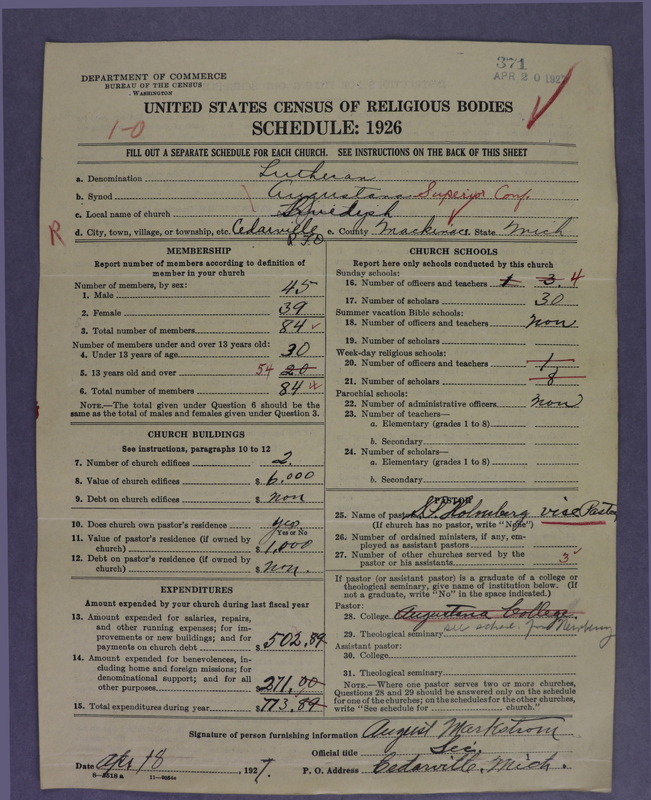 371
APR 20 1927
DEPARTMENT OF COMMERCE
BUREAU OF THE CENSUS
WASHINGTON
UNITED STATES CENSUS OF RELIGIOUS BODIES
1-0
SCHEDULE: 1926
FILL OUT A SEPARATE SCHEDULE FOR EACH CHURCH. SEE INSTRUCTIONS ON THE BACK OF THIS SHEET
a. Denomination Lutheran
b. Synod Augustana Superior Conf.
c. Local name of church Swedish
R d. City, town, village, or township, etc. Cedarville e. County Mackinac State Mich
R.F.D
MEMBERSHIP
Report number of members according to definition of
member in your church
Number of members, by sex:
1. Male 45
2. Female 39
3. Total number of members 84
Number of members under and over 13 years old:
4. Under 13 years of age 30
5. 13 years old and over 54 20
6. Total number of members 84
NOTE.—The total given under Question 6 should be the
same as the total of males and females given under Question 3.
CHURCH BUILDINGS
See instructions, paragraphs 10 to 12
7. Number of church edifices 2
8. Value of church edifices $ 6,000
9. Debt on church edifices $ non
10. Does church own pastor's residence yes
Yes or No
11. Value of pastor's residence (if owned by
church) $ 1,000
12. Debt on pastor's residence (if owned by
church) $ non.
EXPENDITURES
Amount expended by your church during last fiscal year
13. Amount expended for salaries, repairs,
and other running expenses; for im-
provements or new buildings; and for
payments on church debt $ 502.89
14. Amount expended for benevolences, in-
cluding home and foreign missions; for
denominational support; and for all
other purposes 271.00
15. Total expenditures during year $ 773.89
CHURCH SCHOOLS
Report here only schools conducted by this church
Sunday schools:
16. Number of officers and teachers 1 3. 4
17. Number of scholars 30
Summer vacation Bible schools:
18. Number of officers and teachers non
19. Number of scholars
Week-day religious schools:
20. Number of officers and teachers 1
21. Number of scholars 8
Parochial schools:
22. Number of administrative officers non
23. Number of teachers—
a. Elementary (grades 1 to 8)
b. Secondary
24. Number of scholars—
a. Elementary (grades 1 to 8)
b. Secondary
PASTOR
25. Name of pastor Holmberg vise Pastor
(If church has no pastor, write "None")
26. Number of ordained ministers, if any, em-
ployed as assistant pastors
27. Number of other churches served by the
pastor or his assistants 3
If pastor (or assistant pastor) is a graduate of a college or
theological seminary, give name of institution below. (If
not a graduate, write "No" in the space indicated.)
Pastor:
28. College Augustana College
see sched. for Newberry
29. Theological seminary
Assistant pastor:
30. College
31. Theological seminary
NOTE.—Where one pastor serves two or more churches,
Questions 28 and 29 should be answered only on the schedule
for one of the churches; on the schedules for the other churches,
write "See schedule for church."
Signature of person furnishing information August Markstrom
Official title Sec.
Date Apr 18, 1927. P. O. Address Cedarville, Mich.